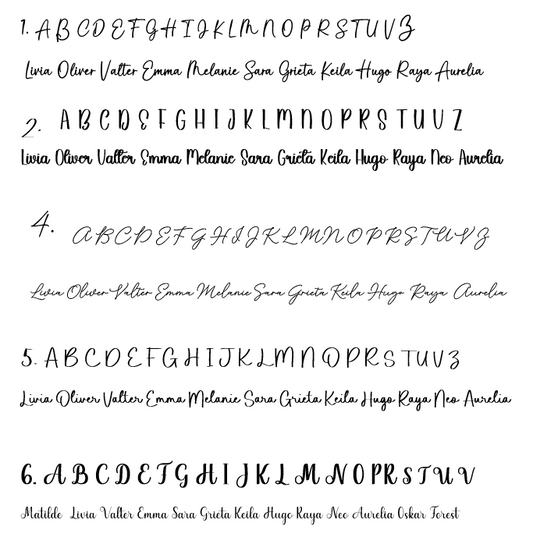 1. A B C D E F G H I J K L M N O P R S T U V Z
Livia Oliver Valter Emma Melanie Sara Grieta Keila Hugo Raya Aurelia
2. A B C D E F G H I J K L M N O P R S T U V Z
Livia Oliver Valter Emma Melanie Sara Grieta Keila Hugo Raya Neo Aurelia
4. A B C D E F G H I J K L M N O P R S T U V Z
Livia Oliver Valter Emma Melanie Sara Grieta Keila Hugo Raya Aurelia
5. A B C D E F G H I J K L M N O P R S T U V Z
Livia Oliver Valter Emma Melanie Sara Grieta Keila Hugo Raya Neo Aurelia
6. A B C D E F G H I J K L M N O P R S T U V
Matilde Livia Valter Emma Sara Grieta Keila Hugo Raya Neo Aurelia Oskar Forest